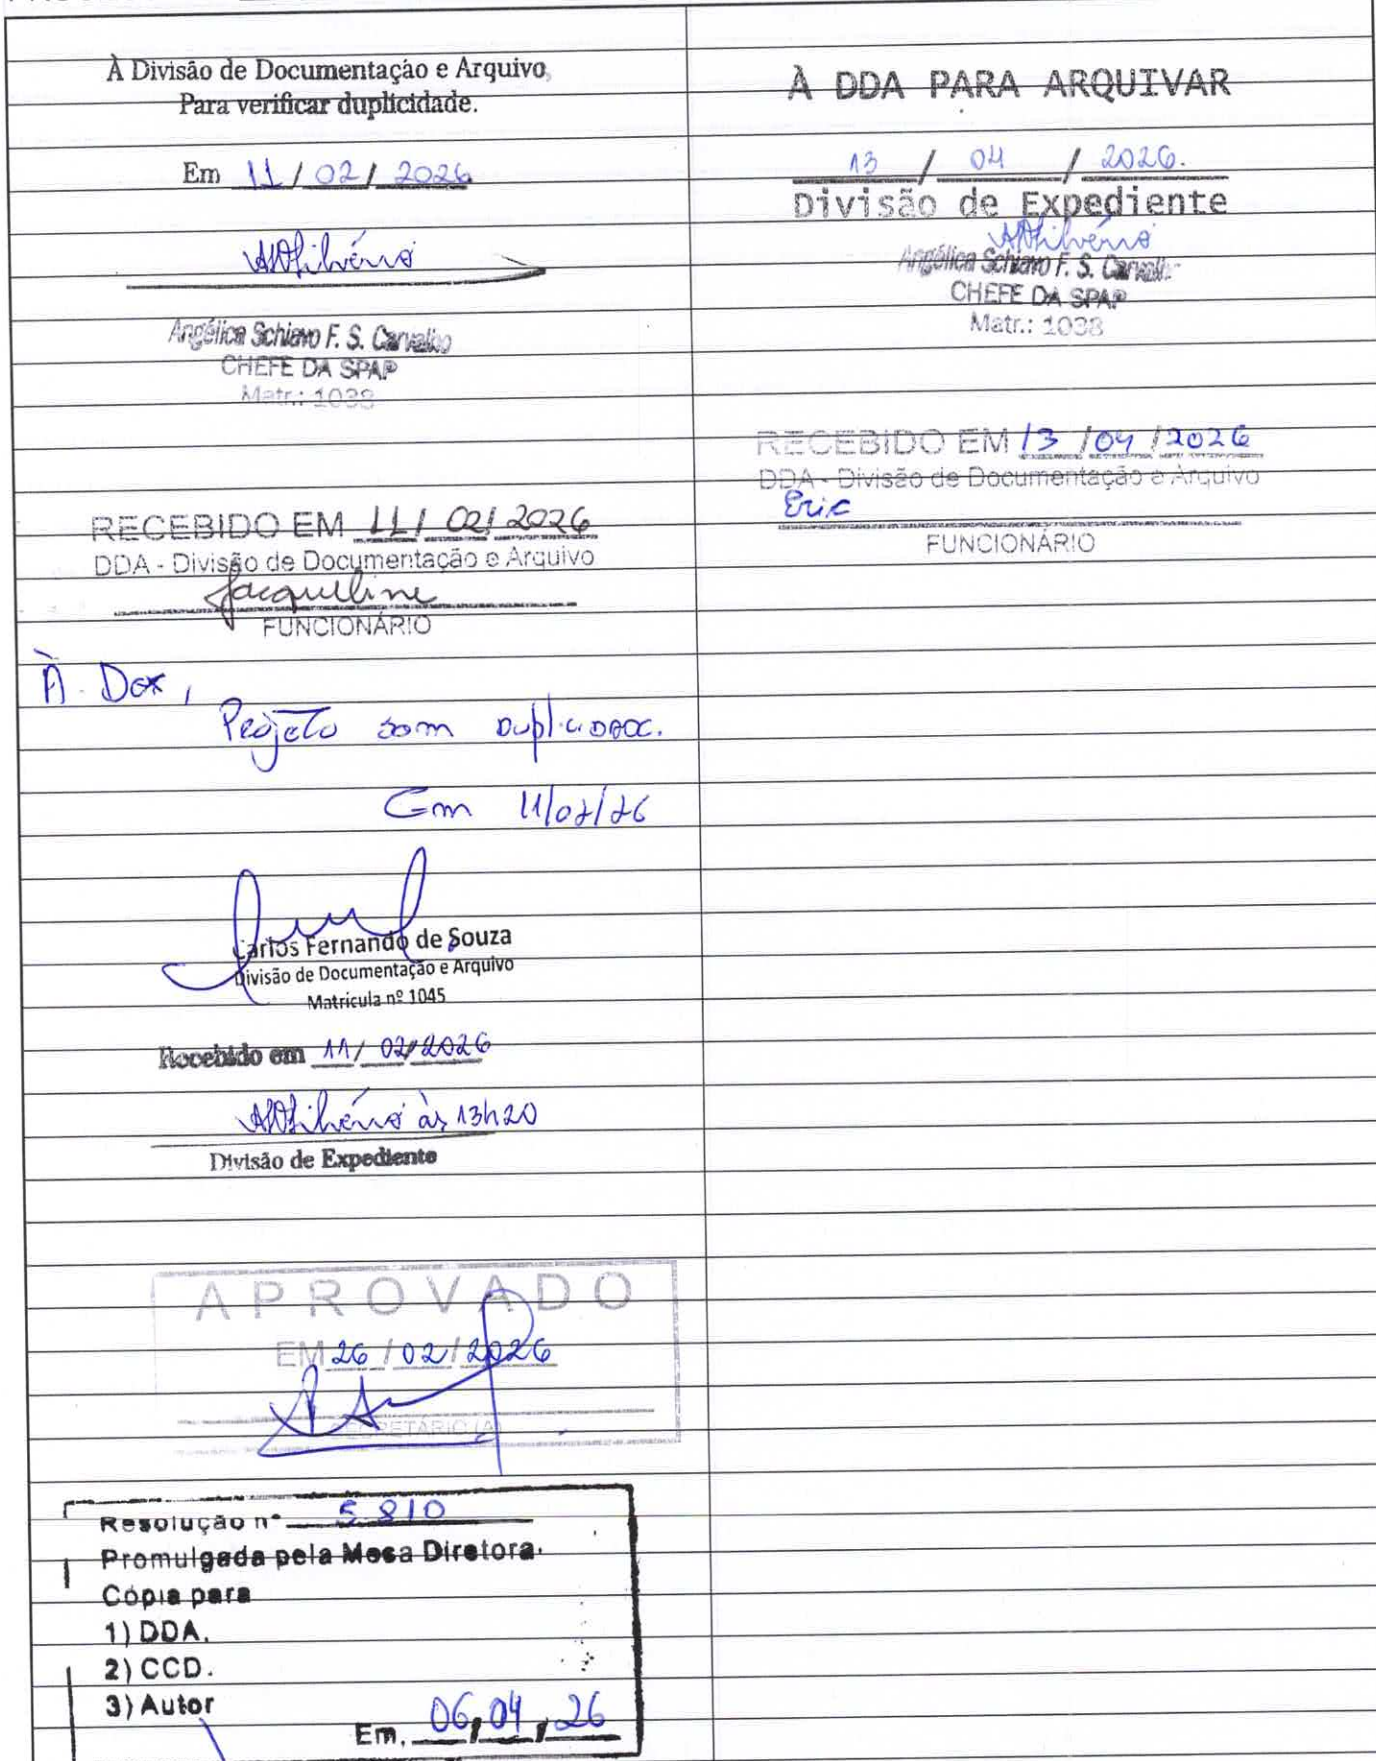 À Divisão de Documentação e Arquivo,
Para verificar duplicidade.
Em 11/02/2026
Angélica Schiavo F. S. Carvalho
CHEFE DA SPAP
Matr.: 1038
RECEBIDO EM 11/02/2026
DDA - Divisão de Documentação e Arquivo
Jacqueline
FUNCIONÁRIO
À
Projeto sem duplicidade.
Em 11/02/26
Carlos Fernando de Souza
Divisão de Documentação e Arquivo
Matrícula nº 1045
Recebido em 11/02/2026
às 13h20
Divisão de Expediente
APROVADO
EM 26/02/2026
SECRETÁRIO (A)
Resolução nº 5.810
Promulgada pela Mesa Diretora.
Cópia para
1) DDA.
2) CCD.
3) Autor
Em, 06,04,26
À DDA PARA ARQUIVAR
13 / 04 / 2026.
Divisão de Expediente
Angélica Schiavo F. S. Carvalho
CHEFE DA SPAP
Matr.: 1038
RECEBIDO EM 13/04/2026
DDA - Divisão de Documentação e Arquivo
Eric
FUNCIONÁRIO